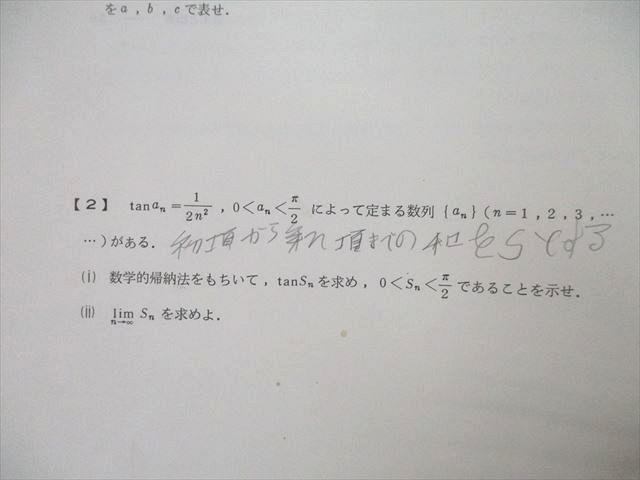 をa，b，cで表せ．
【2】 tan aₙ = 1/2n²，0＜aₙ＜π/2 によって定まる数列｛aₙ｝(n＝1，2，3，…
…)がある． 初項から第n項までの和をSとする
(i) 数学的帰納法をもちいて，tan Sₙを求め，0＜Sₙ＜π/2であることを示せ．
(ii) lim n→∞ Sₙを求めよ．